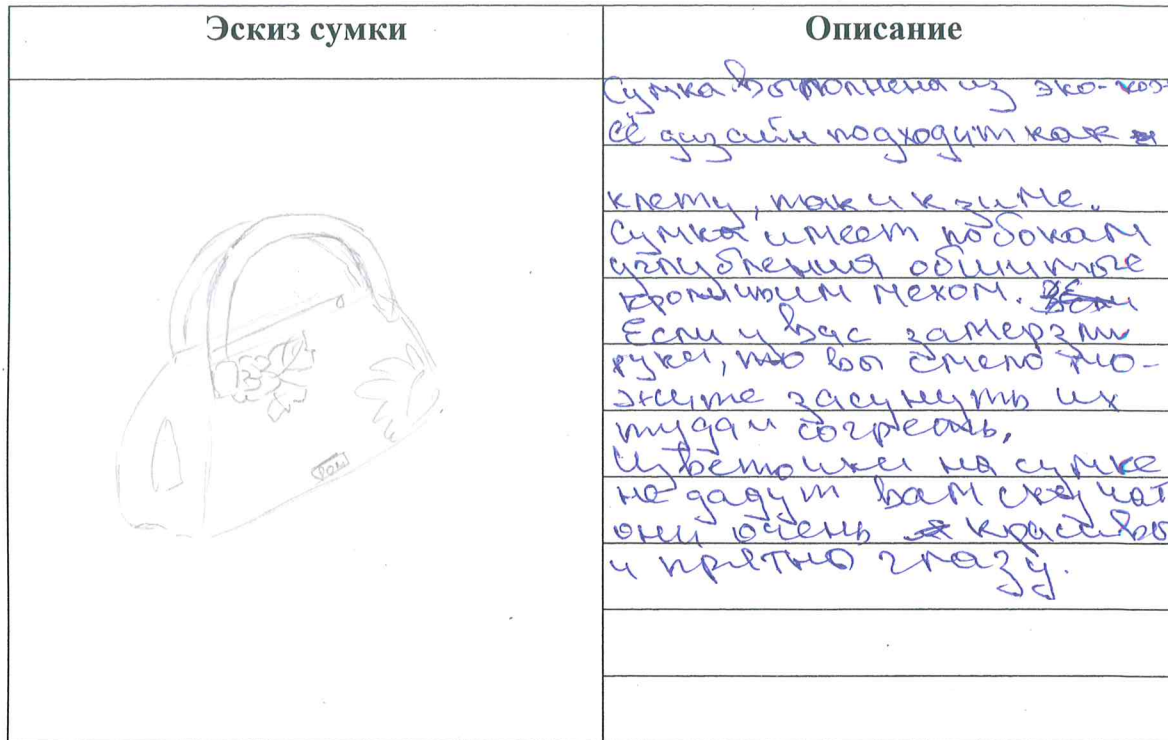 Эскиз сумки
Описание
Сумка выполнена из эко-кож
её дизайн подходит как и
клету, так и к зиме.
Сумка имеет по бокам
углубления обшитые
кроличьим мехом.
Если у вас замерзли
руки, то вы смело мо-
жите засунуть их
туда и согреть.
Цветочки на сумке
не дадут вам скучат
они очень красивы
и прятно глазу.